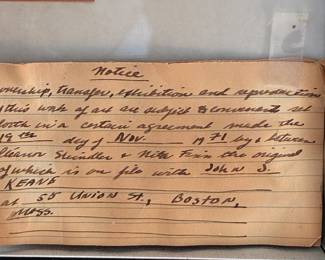 Notice
ownership, transfer, exhibition and reproduction
of this work of art are subject to covenants set
forth in a certain agreement made the
19th day of Nov. 1971 by & between
Eleanor & the original
of which is on file with John S.
KEANE
at 55 Union St., Boston,
Mass.